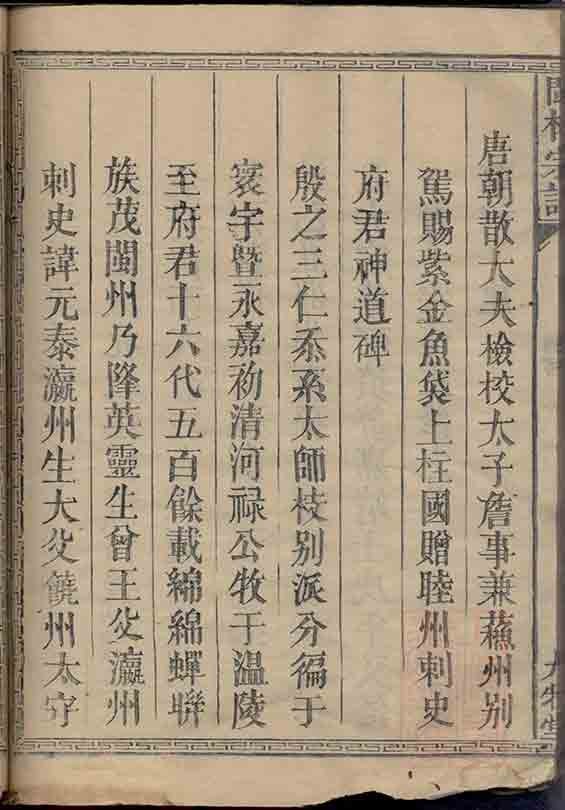 唐朝散大夫檢校太子詹事兼蘓州别
駕賜紫金魚袋上柱國贈睦州刺史
府君神道碑
殷之三仁忝系太師枝别派分徧于
寰宇暨永嘉初清河禄公牧于温陵
至府君十六代五百餘載綿綿蟬聨
族茂閩州乃降英靈生曾王父瀛州
刺史諱元泰瀛州生大父饒州太守